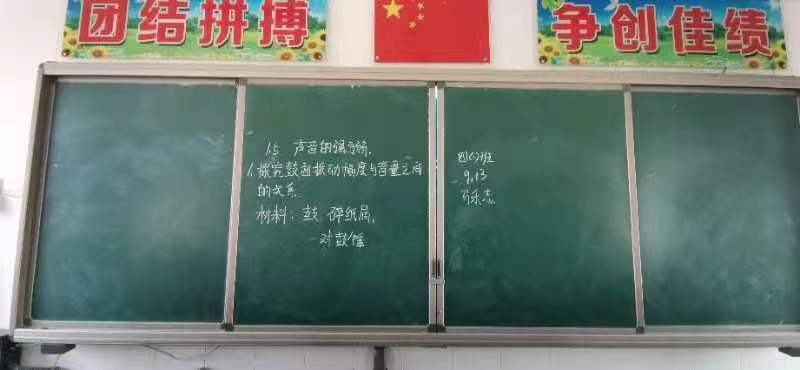 团结拼搏
争创佳绩
1.5 声音的强与弱.
1.探究鼓面振动幅度与音量之间
的关系
材料：鼓 碎纸屑,
一对鼓锤
四(2)班
9.13